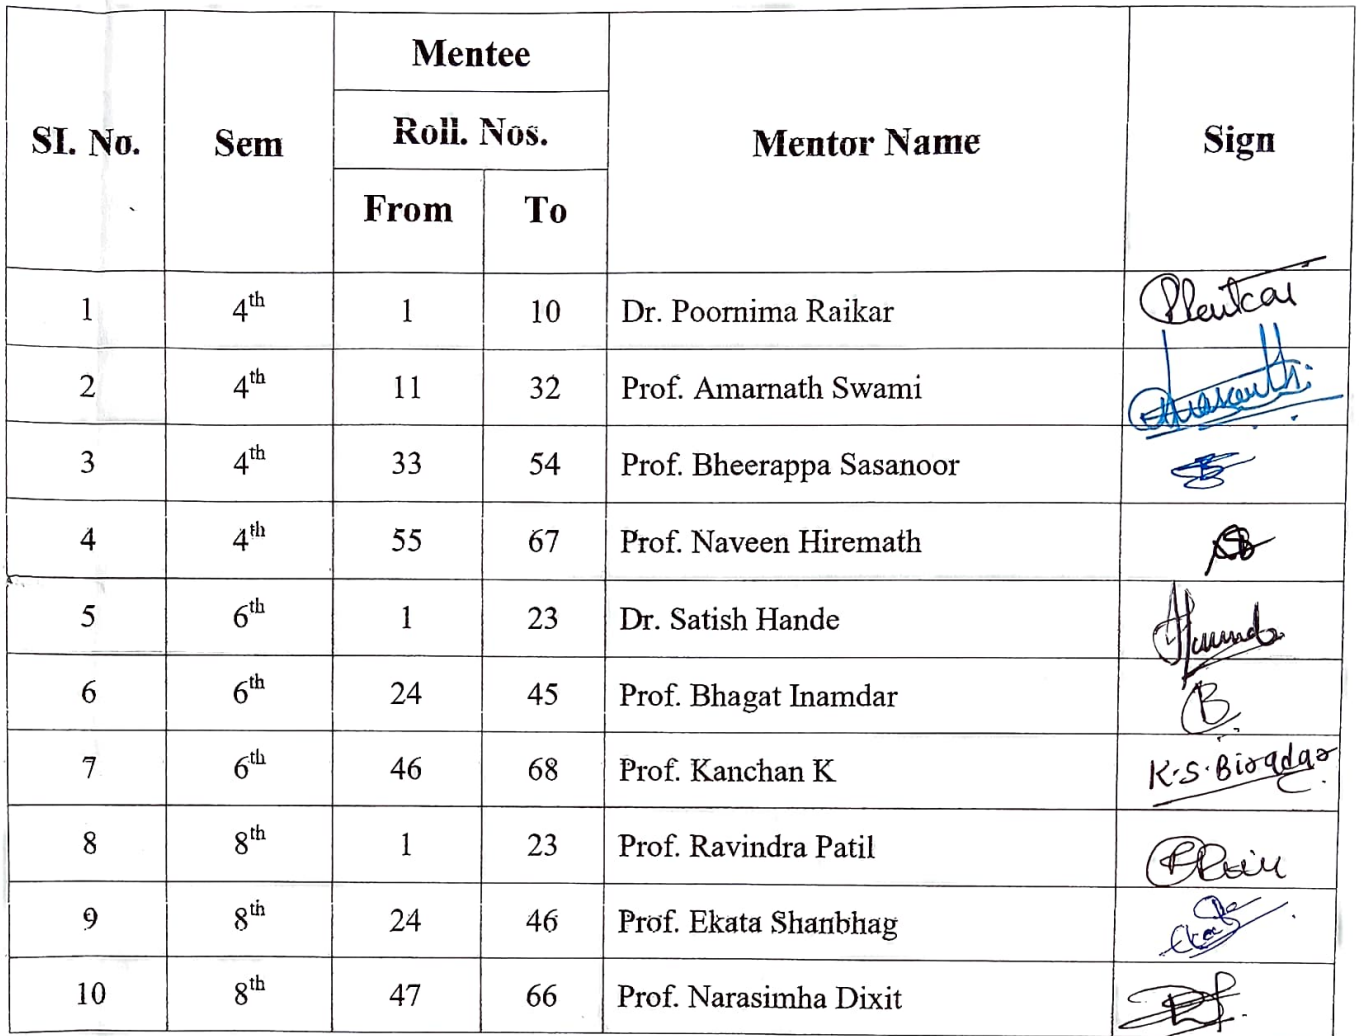 Mentee
Roll. Nos.
SI. No. Sem Mentor Name Sign
From To
1 4th 1 10 Dr. Poornima Raikar
2 4th 11 32 Prof. Amarnath Swami
3 4th 33 54 Prof. Bheerappa Sasanoor
4 4th 55 67 Prof. Naveen Hiremath
5 6th 1 23 Dr. Satish Hande
6 6th 24 45 Prof. Bhagat Inamdar B
7 6th 46 68 Prof. Kanchan K K.S.Biradar
8 8th 1 23 Prof. Ravindra Patil
9 8th 24 46 Prof. Ekata Shanbhag
10 8th 47 66 Prof. Narasimha Dixit